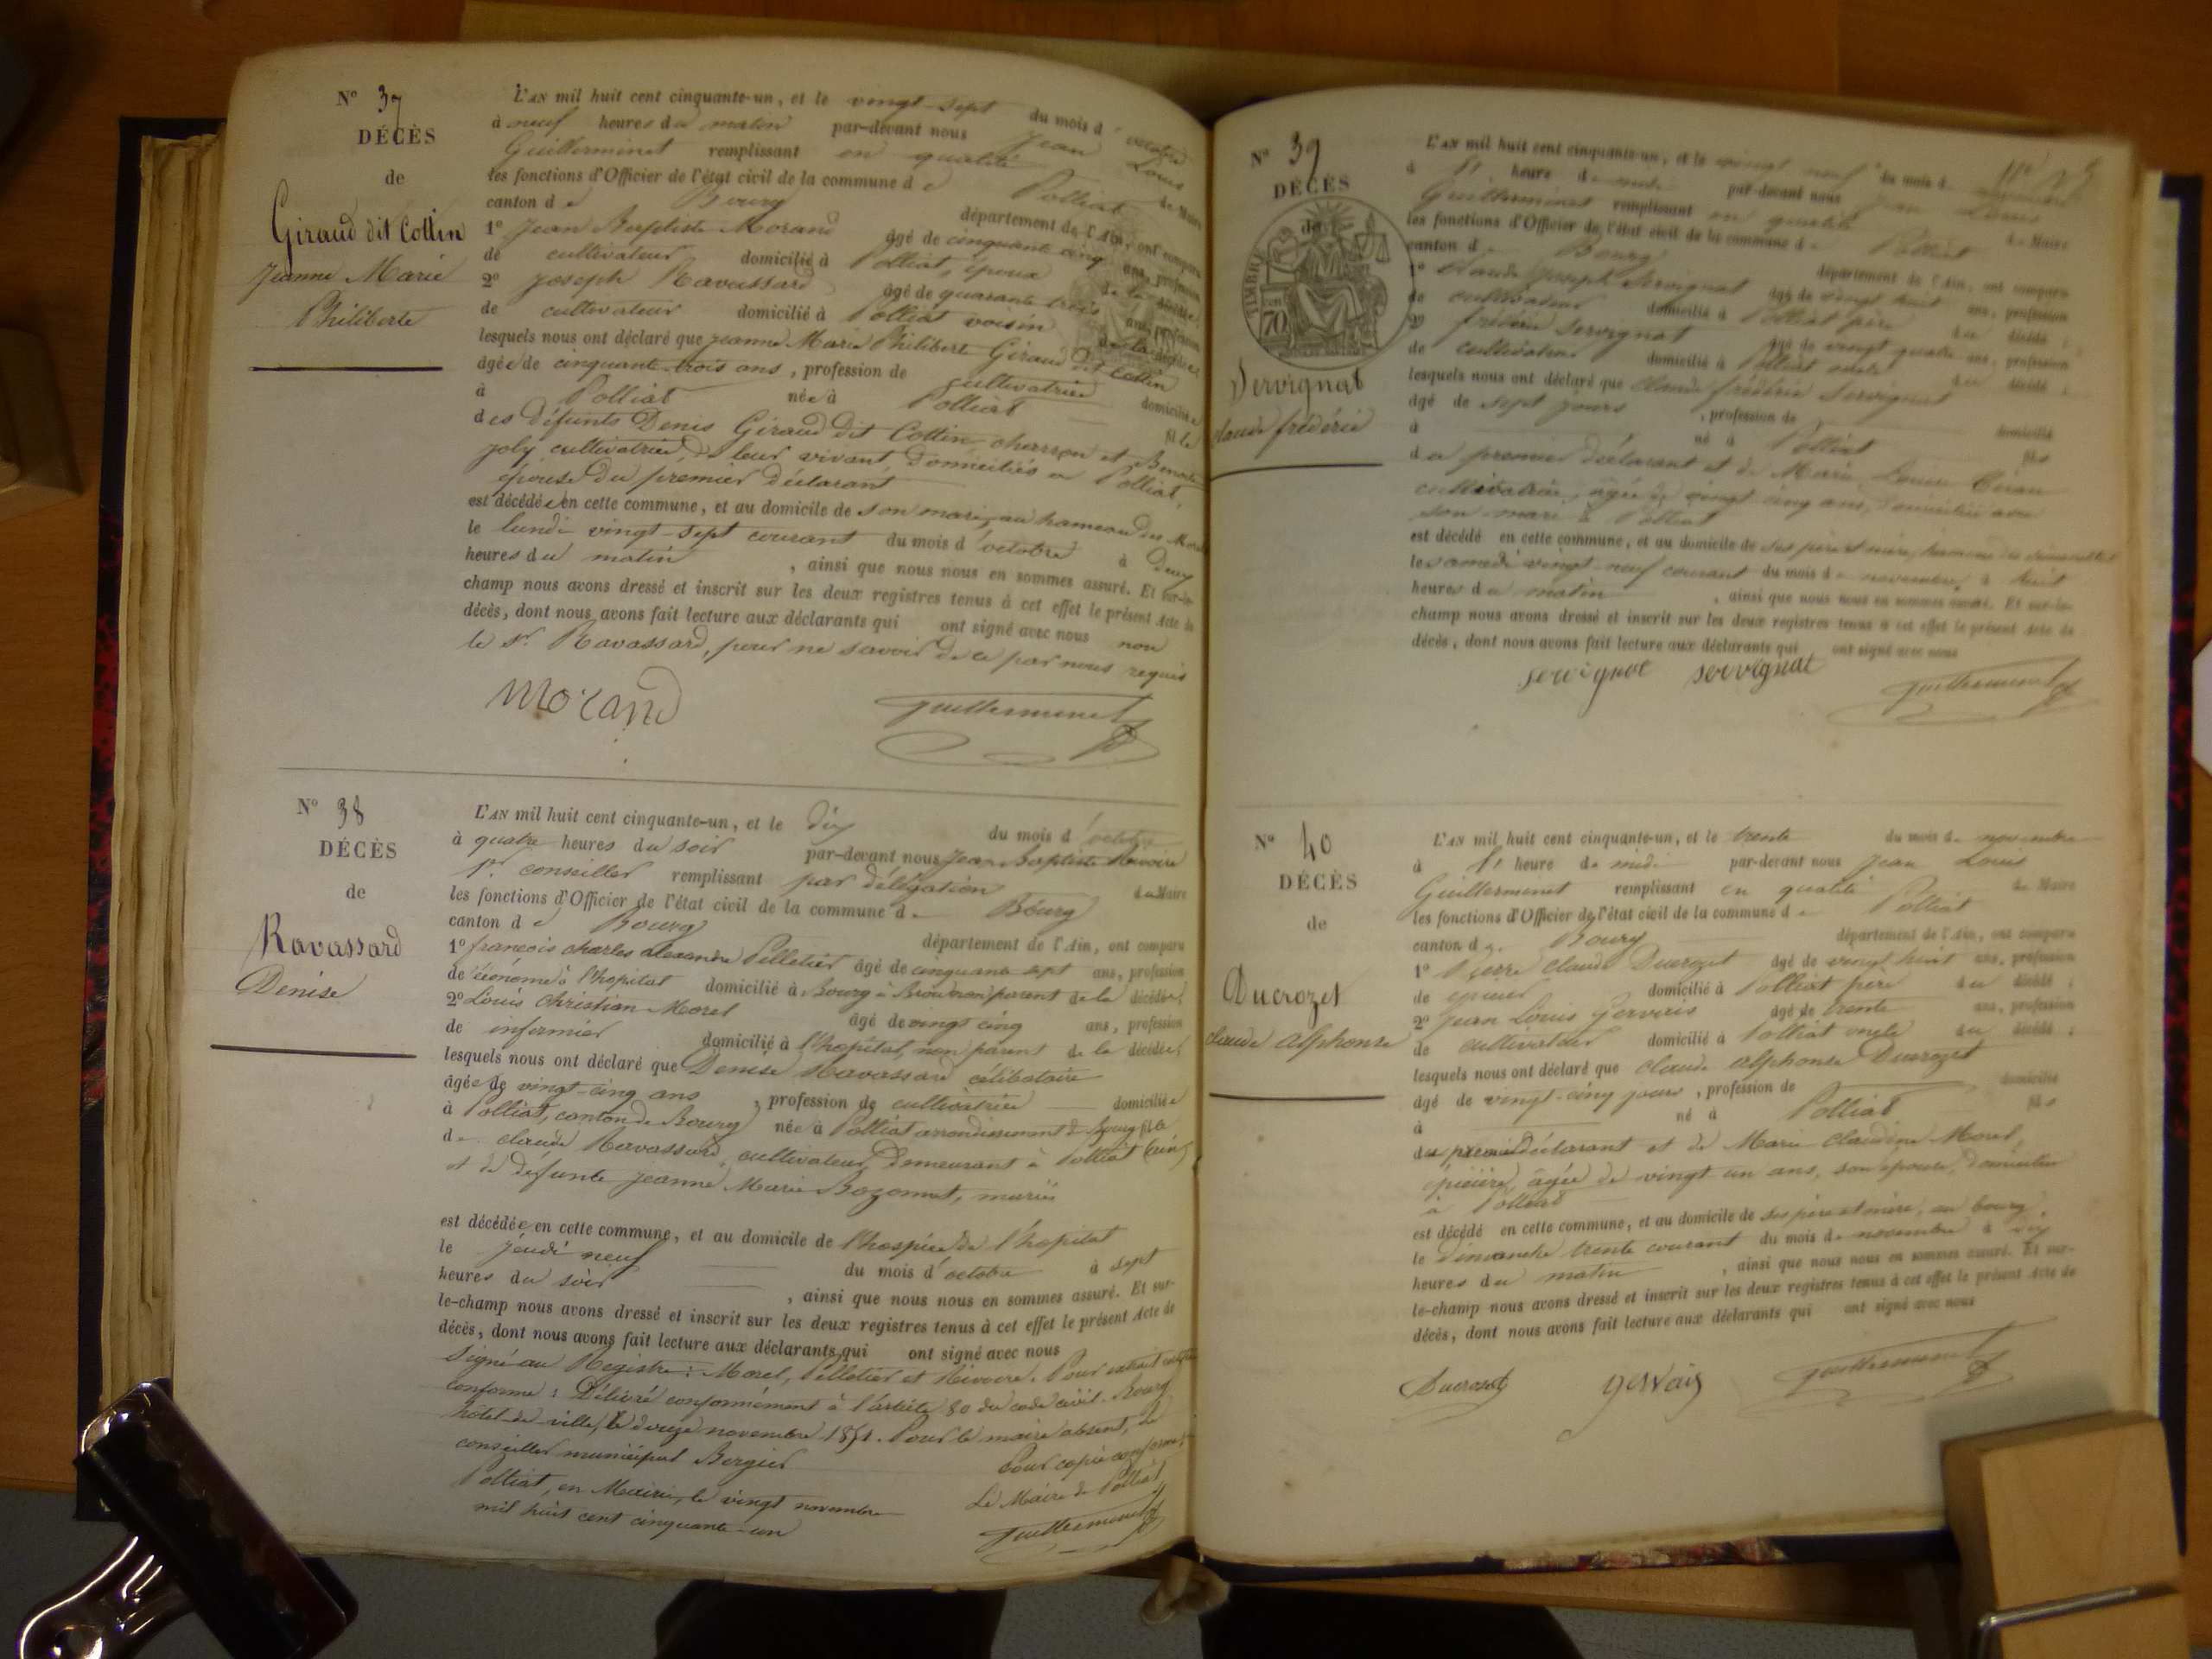 N° 37
DÉCÈS
de
Giraud dit Cottin
Jeanne Marie
Philiberte
L'AN mil huit cent cinquante-un, et le vingt-sept du mois d'octobre
à neuf heures du matin par-devant nous Jean Louis
Guillerminet remplissant en qualité de Maire
les fonctions d'Officier de l'état civil de la commune de Polliat
canton de Bourg département de l'Ain, ont comparu
1° Jean Baptiste Morand âgé de cinquante cinq ans, profession
de cultivateur domicilié à Polliat, époux de la décédée
2° Joseph Ravassard âgé de quarante trois ans, profession
de cultivateur domicilié à Polliat voisin de la décédée
lesquels nous ont déclaré que jeanne Marie Philiberte Giraud dit Cottin
âgée de cinquante-trois ans, profession de cultivatrice domiciliée
à Polliat née à Polliat fille
des défunts Denis Giraud dit Cottin charron et Benoite
joly cultivatrice, de leur vivant domiciliés à Polliat,
épouse du premier déclarant
est décédée en cette commune, et au domicile de son mari, au hameau des
le lundi vingt-sept courant du mois d'octobre à deux
heures du matin, ainsi que nous nous en sommes assuré. Et sur-le-
champ nous avons dressé et inscrit sur les deux registres tenus à cet effet le présent Acte de
décès, dont nous avons fait lecture aux déclarants qui ont signé avec nous non
le Sr. Ravassard, pour ne savoir de ce par nous requis
Morand Guillerminet
N° 38
DÉCÈS
de
Ravassard
Denise
L'AN mil huit cent cinquante-un, et le dix du mois d'octobre
à quatre heures du soir par-devant nous Jean Baptiste
1er. conseiller remplissant par délégation du Maire
les fonctions d'Officier de l'état civil de la commune de Bourg
canton de Bourg département de l'Ain, ont comparu
1° françois charles alexandre Pelletier âgé de cinquante-sept ans, profession
de économe à l'hopital domicilié à Bourg non parent de la décédée
2° Louis Christian Morel âgé de vingt cinq ans, profession
de infirmier domicilié à l'hopital, non parent de la décédée
lesquels nous ont déclaré que Denise Ravassard célibataire
âgée de vingt-cinq ans, profession de cultivatrice domiciliée
à Polliat, canton de Bourg née à Polliat arrondissement de Bourg fille
de claude Ravassard, cultivateur, demeurant à Polliat (Ain)
et de défunte jeanne Marie mariés
est décédée en cette commune, et au domicile de l'hospice de l'hopital
le jeudi neuf du mois d'octobre à sept
heures du soir, ainsi que nous nous en sommes assuré. Et sur-
le-champ nous avons dressé et inscrit sur les deux registres tenus à cet effet le présent Acte de
décès, dont nous avons fait lecture aux déclarants qui ont signé avec nous
Signé au Registre: Morel, Pelletier et Pour extrait
conforme: Délivré conformément à l'article 80 du code civil. Bourg
hôtel-de-ville, le douze novembre 1851. Pour le maire absent, le
conseiller municipal Bergier
Pour copie conforme
Polliat, en Mairie, le vingt novembre
Le Maire de Polliat
mil huit cent cinquante-un
Guillerminet
N° 39
DÉCÈS
de
TIMBRE
70
Servignat
claude frédéric
L'AN mil huit cent cinquante-un, et le vingt neuf du mois de novembre
à heure de par-devant nous Jean Louis
Guillerminet remplissant en qualité de Maire
les fonctions d'Officier de l'état civil de la commune de Polliat
canton de Bourg département de l'Ain, ont comparu
1° claude joseph Servignat âgé de vingt huit ans, profession
de cultivateur domicilié à Polliat père du décédé;
2° frédéric Servignat âgé de vingt quatre ans, profession
de cultivateur domicilié à Polliat oncle du décédé;
lesquels nous ont déclaré que claude frédéric Servignat
âgé de sept jours, profession de domicilié
à né à Polliat fils
du premier déclarant et de Marie Louise
cultivatrice, âgée de vingt cinq ans, domiciliée avec
son mari à Polliat
est décédé en cette commune, et au domicile de ses père et mère,
le samedi vingt-neuf courant du mois de novembre à huit
heures du matin, ainsi que nous nous en sommes assuré. Et sur-le-
champ nous avons dressé et inscrit sur les deux registres tenus à cet effet le présent Acte de
décès, dont nous avons fait lecture aux déclarants qui ont signé avec nous
servignat servignat Guillerminet
N° 40
DÉCÈS
de
Ducrozet
claude alphonse
L'AN mil huit cent cinquante-un, et le trente du mois de novembre
à heure de midi par-devant nous Jean Louis
Guillerminet remplissant en qualité de Maire
les fonctions d'Officier de l'état civil de la commune de Polliat
canton de Bourg département de l'Ain, ont comparu
1° Pierre Claude Ducrozet âgé de vingt huit ans, profession
de épicier domicilié à Polliat père du décédé;
2° Jean Louis Gervais âgé de trente ans, profession
de cultivateur domicilié à Polliat oncle du décédé;
lesquels nous ont déclaré que claude alphonse Ducrozet
âgé de vingt-cinq jours, profession de domicilié
à né à Polliat fils
du premier déclarant et de Marie Claudine Morel,
épicière, âgée de vingt-un ans, son épouse, domiciliée
à Polliat
est décédé en cette commune, et au domicile de ses père et mère, au bourg,
le dimanche trente courant du mois de novembre à dix
heures du matin, ainsi que nous nous en sommes assuré. Et sur-
le-champ nous avons dressé et inscrit sur les deux registres tenus à cet effet le présent Acte de
décès, dont nous avons fait lecture aux déclarants qui ont signé avec nous
Ducrozet gervais Guillerminet